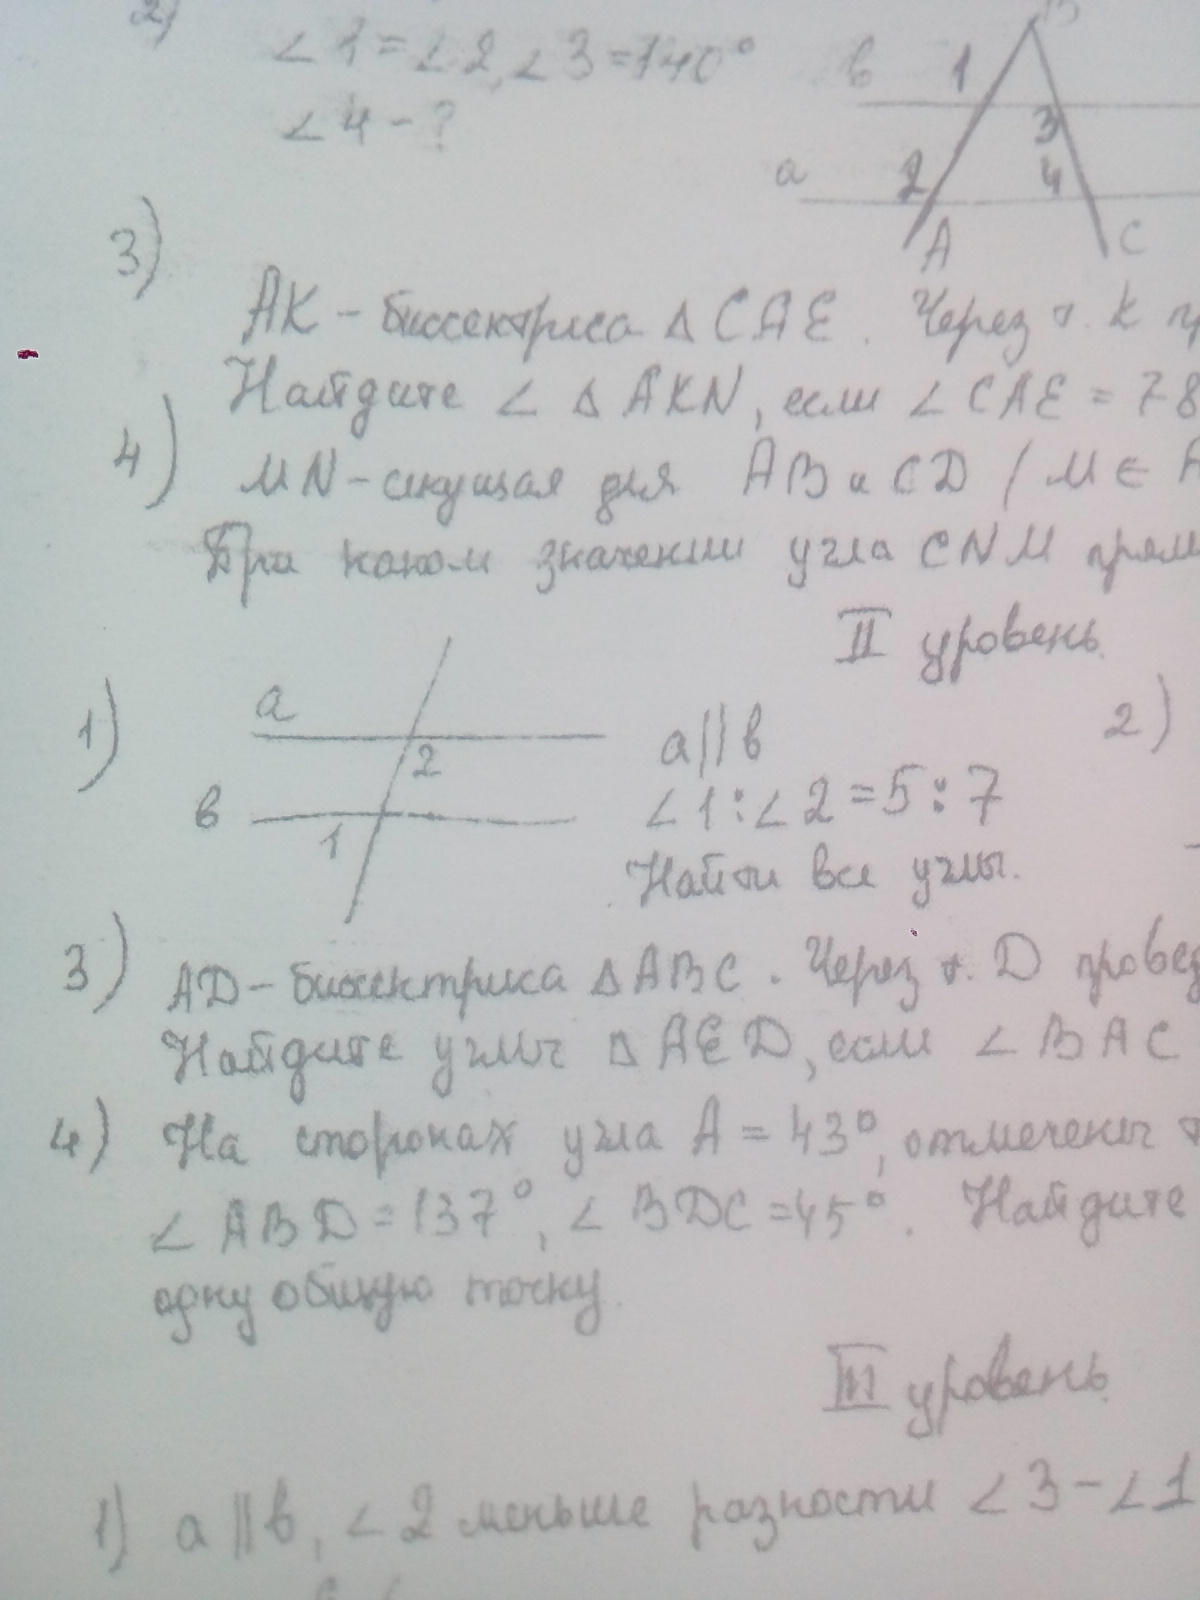 2)
∠1=∠2, ∠3=140°
∠4-?
B
в 1
3
а 2 4
А С
3)
АК - биссектриса △САЕ. Через т. К
Найдите ∠ △АКN, если ∠САЕ = 78
4) MN - секущая для АВ и CD (М ∈
При каком значении угла CNM
II уровень.
1)
а
2
в
1
а||в
∠1:∠2=5:7
Найти все углы.
2)
3) AD - биссектриса △АВС. Через т. D
Найдите углы △AED, если ∠ВАС
4) На сторонах угла А = 43°, отмечены
∠ABD=137°, ∠BDC=45°. Найдите
одну общую точку.
III уровень.
1) а||в, ∠2 меньше разности ∠3-∠1